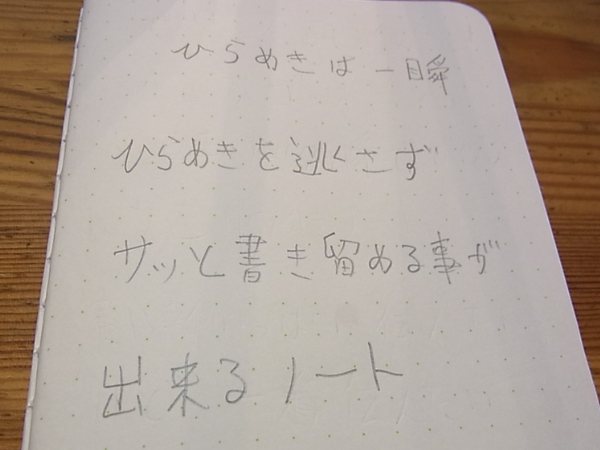 ひらめきは一瞬
ひらめきを逃さず
サッと書き留める事が
出来るノート